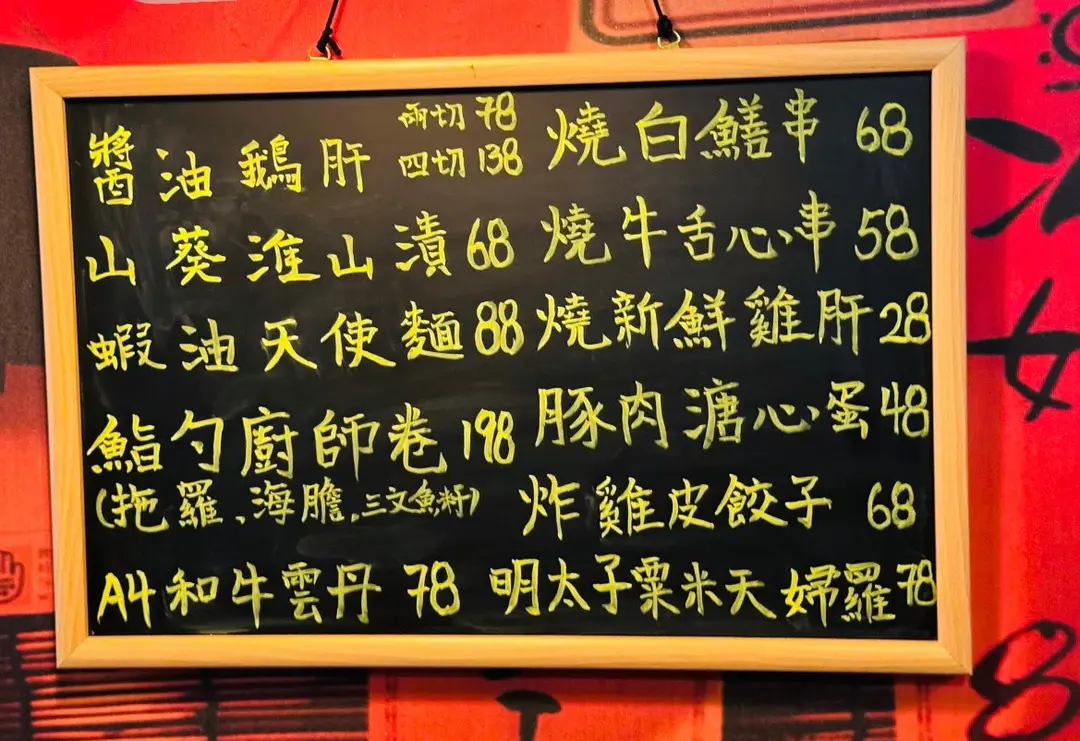 醬油鵝肝 兩切 78
四切 138
山葵淮山漬 68
蝦油天使麵 88
鮨勺廚師卷 198
(拖羅、海膽、三文魚籽)
A4和牛雲丹 78
燒白鱔串 68
燒牛舌心串 58
燒新鮮雞肝 28
豚肉溏心蛋 48
炸雞皮餃子 68
明太子粟米天婦羅 78